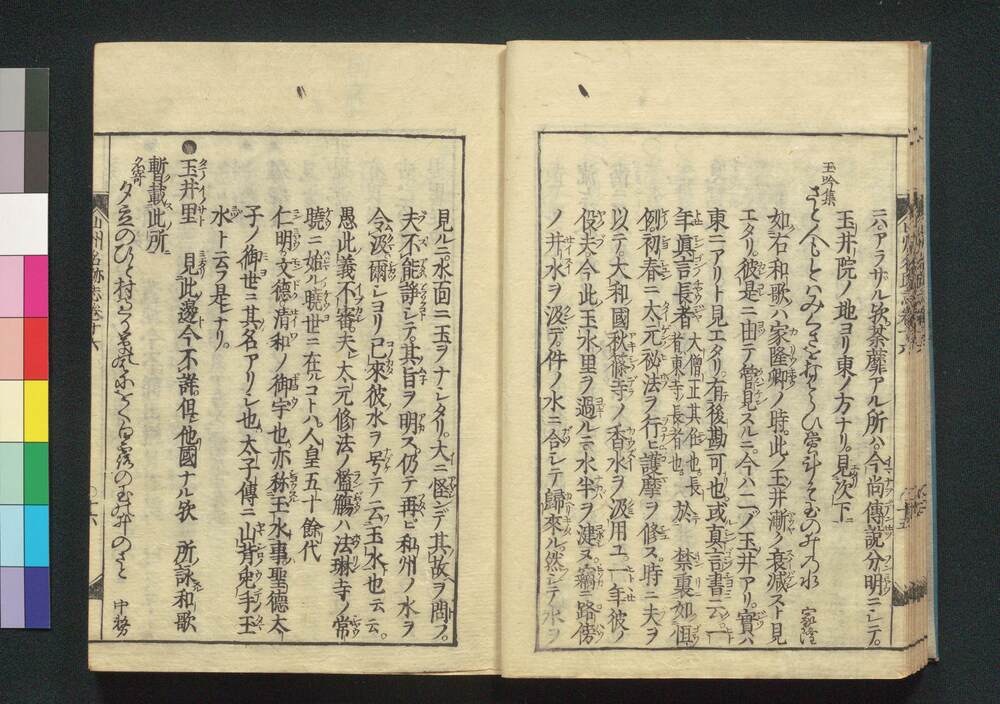 ニハアラサル欤荼蘼アル所ハ今尚傳說分明ニシテ
玉井院ノ地ヨリ東ノ方ナリ見次下
玉吟集
家隆
如右和歌ハ家隆卿ノ時此ノ玉井漸ノ衰減スト見
エタリ彼是ニ由テ管見スルニ今ハ二ノ玉井アリ實ハ
東ニアリト見エタリ有後勘可也或真言書ニ云一
年眞言長者大僧正其任也長者東寺長者也於テ禁裏如恒
例初春ニ太元祕法ヲ行ヒ護摩ヲ修ス時ニ夫ヲ
以テ大和國秋篠寺ノ香水ヲ汲用ユ一年彼ノ
役夫今此玉水里ヲ過ルニ水半ヲ漣ス竊ニ路傍
ノ井水ヲ汲テ件ノ水ニ合シテ歸來ル然シテノ水ヲ
見ルニ水面ニ玉ヲナシタリ大ニ怪ンデ其故ヲ問フ
夫不能諍シテ其旨ヲ明ス仍テ再ヒ和州ノ水ヲ
令汲爾シヨリ已來彼水ヲ号テ云玉水也云云
愚此義不審夫ヒ太元修法ノ濫觴ハ法琳寺ノ常
曉ニ始ル曉世ニ在シコトハ人皇五十餘代
仁明文德清和ノ御宇也亦称玉水事聖德太
子ノ御世ニ其名アリシ也太子傳ニ山背兎手玉
水ト云フ是ヒナリ
●玉井里 見此邊今不詳但他國ナル欤 所詠和歌
暫載此所
名寄
夕立のひと村
中務
山州名跡志卷十六